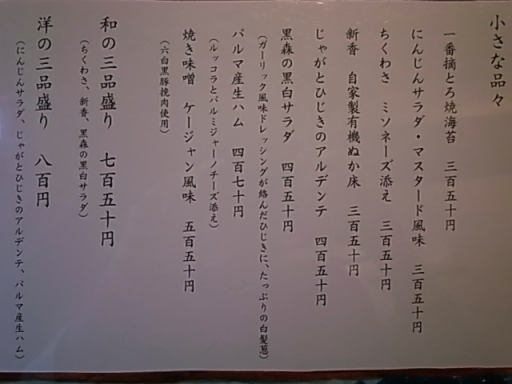 小さな品々
一番摘とろ焼海苔 三百五十円
にんじんサラダ・マスタード風味 三百五十円
ちくわさ ミソネーズ添え 三百五十円
新香 自家製有機ぬか床 三百五十円
じゃがとひじきのアルデンテ 四百五十円
黒森の黒白サラダ 四百五十円
（ガーリック風味ドレッシングが絡んだひじきに、たっぷりの白髪葱）
パルマ産生ハム 四百七十円
（ルッコラとパルミジャーノチーズ添え）
焼き味噌 ケージャン風味 五百五十円
（六白黒豚挽肉使用）
和の三品盛り 七百五十円
（ちくわさ、新香、黒森の黒白サラダ）
洋の三品盛り 八百円
（にんじんサラダ、じゃがとひじきのアルデンテ、パルマ産生ハム）